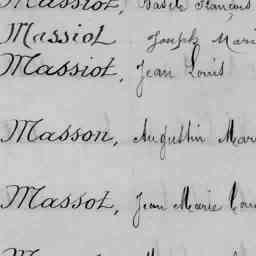 Massiot, Basile François
Massiot Joseph Mari
Massiot, Jean Louis
Masson, Augustin Mar
Massot, Jean Marie Lou